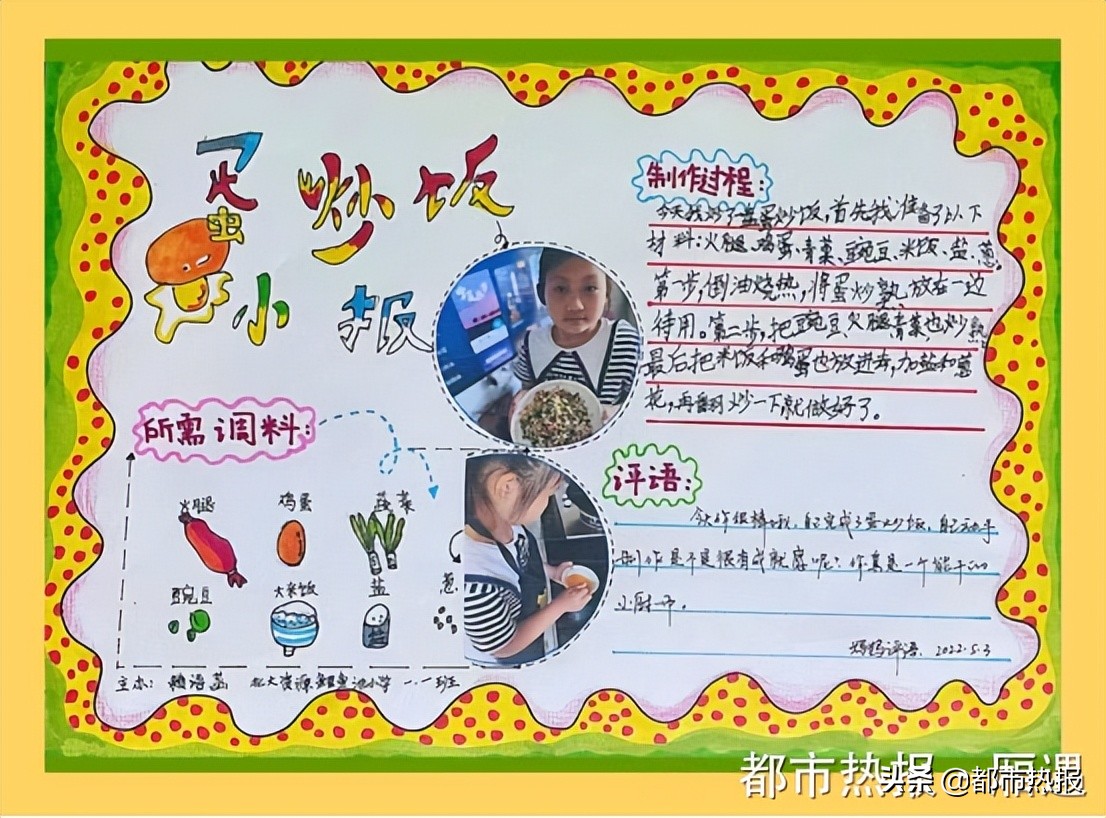 蛋炒饭
小报
制作过程:
今天我炒了盘蛋炒饭,首先我准备了以下
材料:火腿、鸡蛋、青菜、豌豆、米饭、盐、葱。
第一步,倒油烧热,将蛋炒熟,放在一边
待用。第二步,把豌豆火腿青菜也炒熟,
最后把米饭和鸡蛋也放进来,加盐和葱
花,再翻炒一下就做好了。
所需调料:
火腿
鸡蛋
蔬菜
豌豆
大米饭
盐
葱
评语:
今天你很棒哦,自己完成了蛋炒饭,自己动手
制作是不是很有成就感呢?你真是一个能干的
小厨师。
妈妈评语 2022.5.3
北大资源鲤鱼池小学 一.一班
都市热报
头条@都市热报